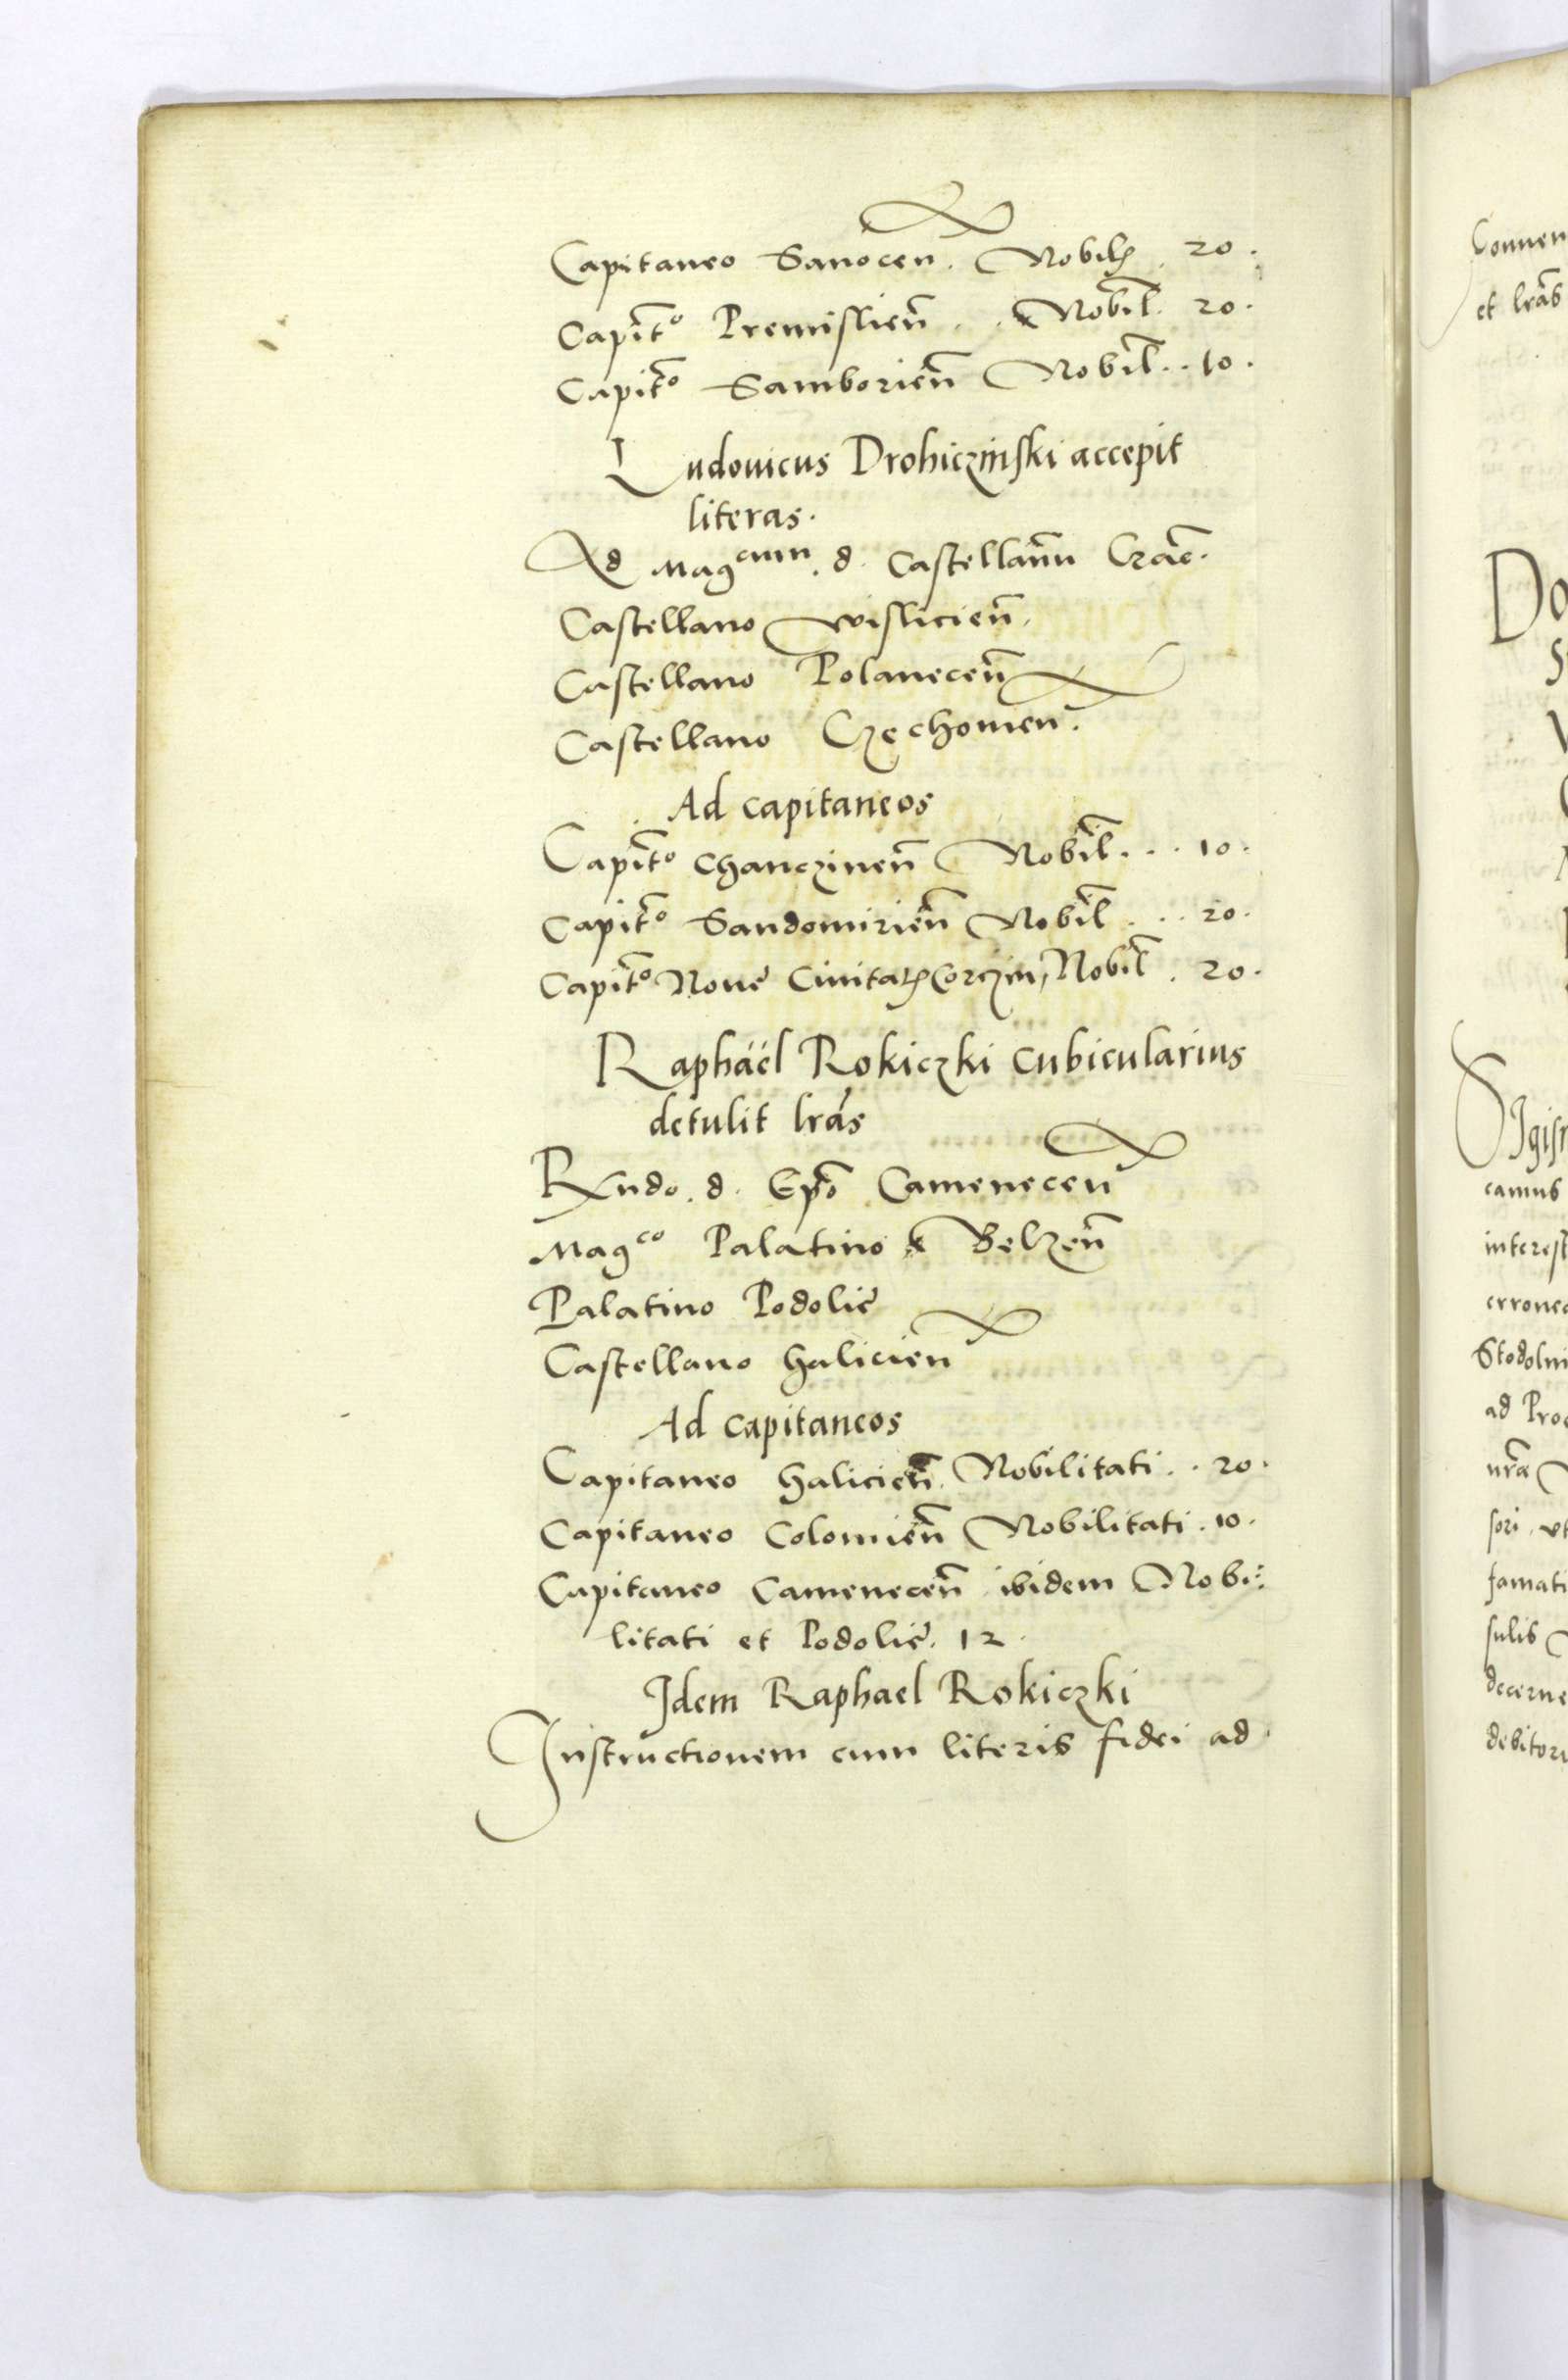 Capitaneo Sanocen. Nobil. 20.
Capit̃o Premislien̄ . . Nobil̃. 20.
Capit̃o Samborien̄ Nobil̃. . 10.
Ludouicus Drohiczinski accepit
literas.
Ad Mag^cum. d. Castellanũ Crac̃.
Castellano Wislicien̄.
Castellano Polanecen̄
Castellano Czechouien̄.
Ad capitaneos
Capit̃o Chanczinen̄ Nobil̃. . . 10.
Capit̃o Sandomirien̄ Nobil̃ . . . 20.
Capit̃o Noue Ciuitatis Corczin, Nobil̃ . 20.
Raphäel Rokiczki cubicularius
detulit lr̃as
Rx̃ndo. d. Ep̃o Camenecen̄
Mag^co Palatino Belzen̄
Palatino Podolie
Castellano Halicien̄
Ad capitaneos
Capitaneo Halicien̄. Nobilitati . . 20.
Capitaneo Colomien̄ Nobilitati . 10.
Capitaneo Camenecen̄ ibidem Nobi:
litati et Podolie. 12.
Idem Raphael Rokiczki
Instructionem cum literis fidei ad
Conuen
et lr̃as
Do
Sigis
camus
interest
errone
Stodolni
ad Pro
nr̃a
sori. vt
famati
sulis
decerne
debitor